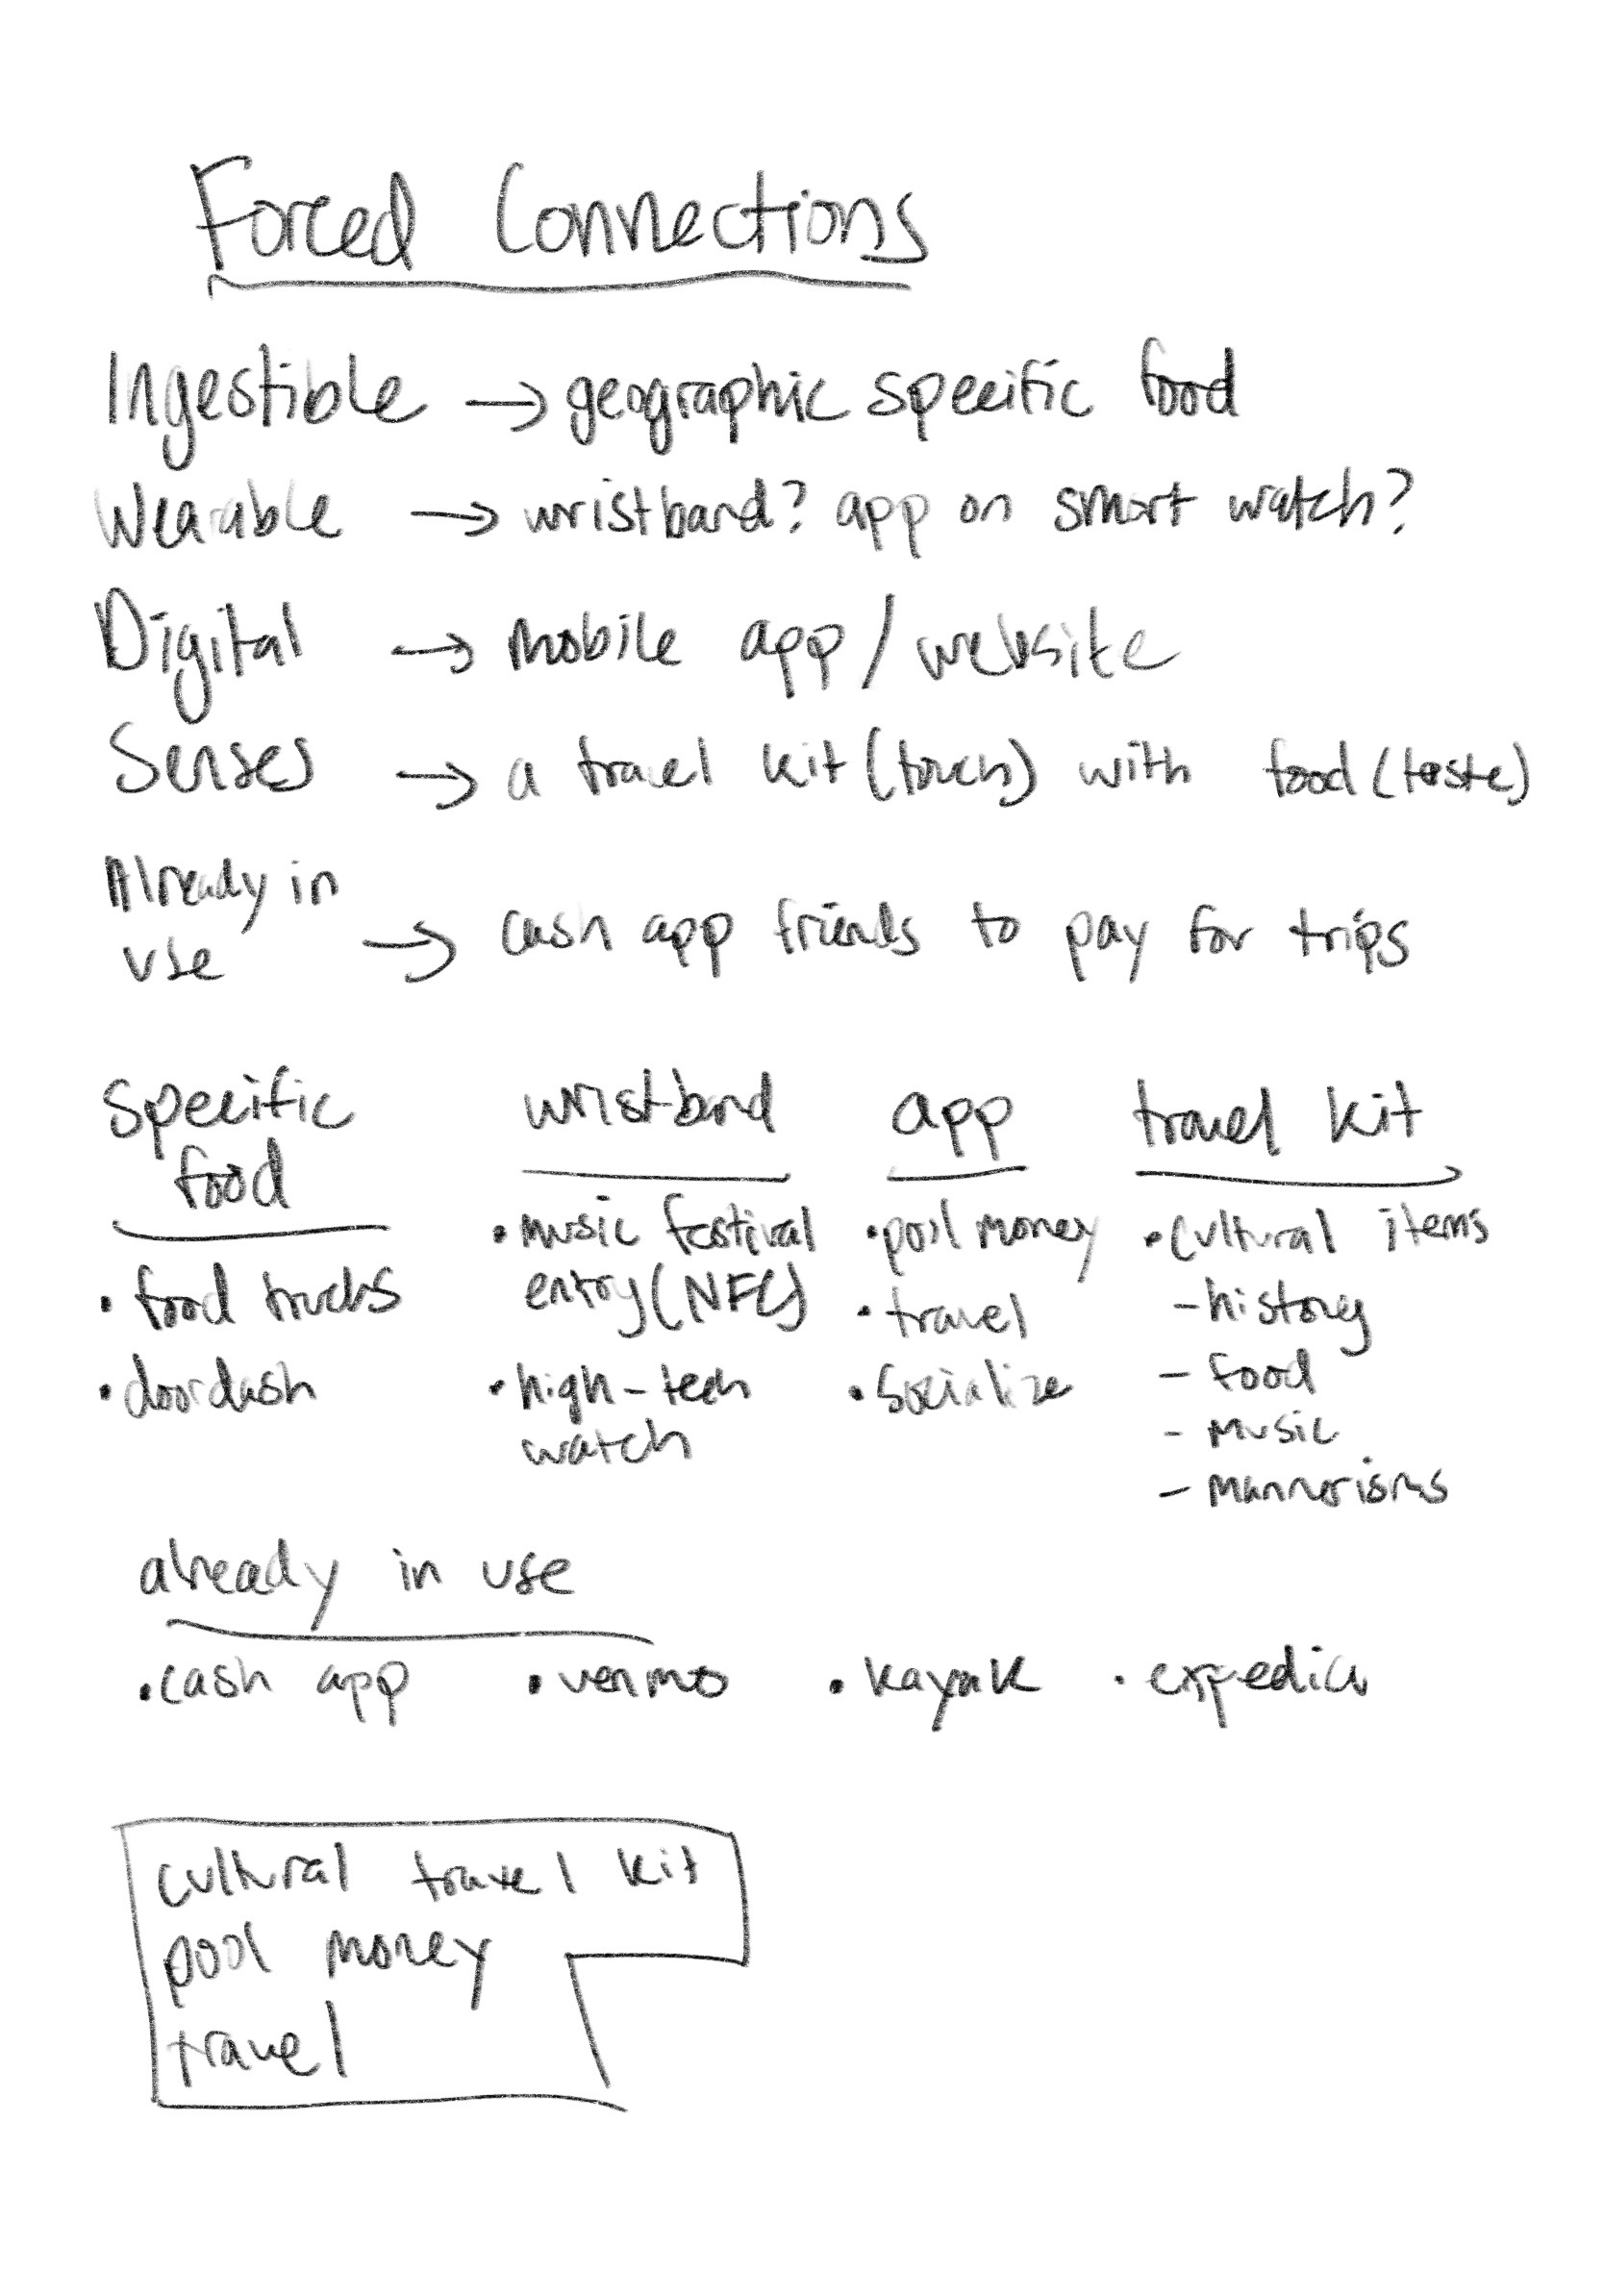 Forced Connections
Ingestible → geographic specific food
Wearable → wristband? app on smart watch?
Digital → mobile app/website
Senses → a travel kit (touch) with food (taste)
Already in
use → cash app friends to pay for trips
specific
food
• food trucks
• doordash
wristband
• music festival
entry (NFC)
• high-tech
watch
app
• pool money
• travel
• socialize
travel kit
• cultural items
- history
- food
- music
- mannerisms
already in use
• cash app • venmo • kayak • expedia
cultural travel kit
pool money
travel